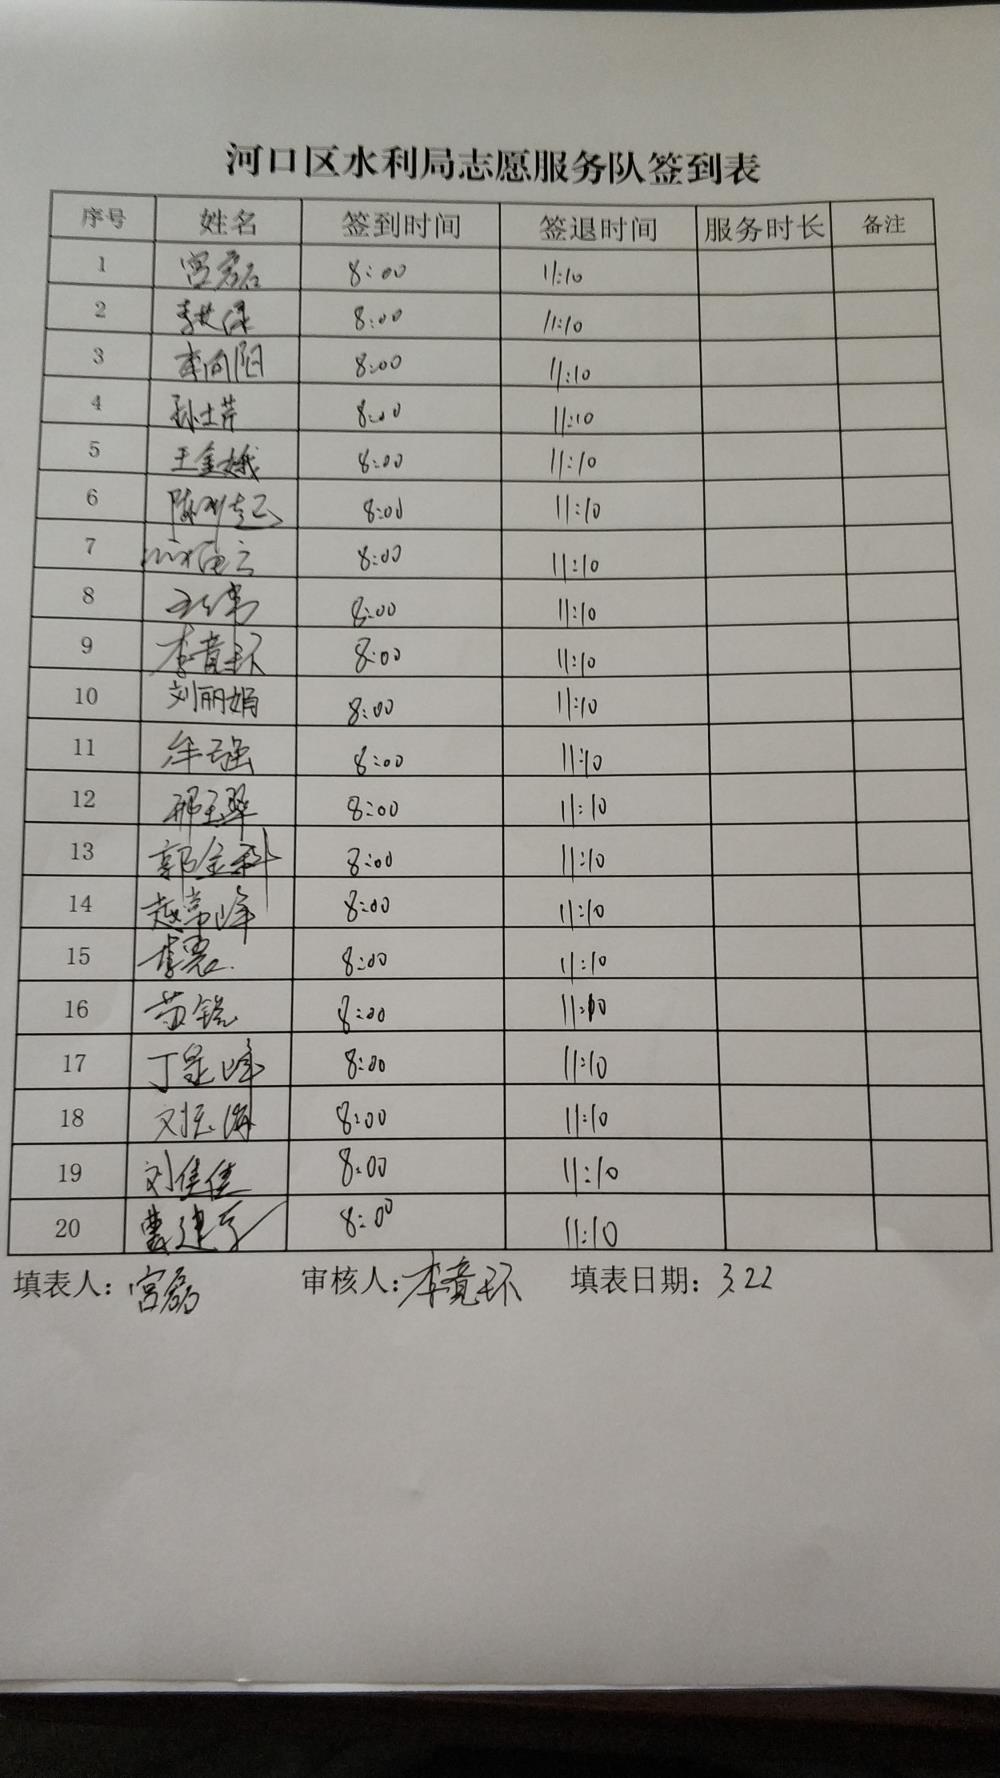 河口区水利局志愿服务队签到表
序号 姓名 签到时间 签退时间 服务时长 备注
1 宫磊 8:00 11:10
2 8:00 11:10
3 李向阳 8:00 11:10
4 孙士芹 8:00 11:10
5 王金娥 8:00 11:10
6 8:00 11:10
7 8:00 11:10
8 8:00 11:10
9 李竟环 8:00 11:10
10 刘丽娟 8:00 11:10
11 牟强 8:00 11:10
12 邢玉翠 8:00 11:10
13 郭金科 8:00 11:10
14 赵常峰 8:00 11:10
15 8:00 11:10
16 苗锐 8:00 11:10
17 8:00 11:10
18 8:00 11:10
19 刘佳佳 8:00 11:10
20 8:00 11:10
填表人: 宫磊 审核人: 李竟环 填表日期: 3.22